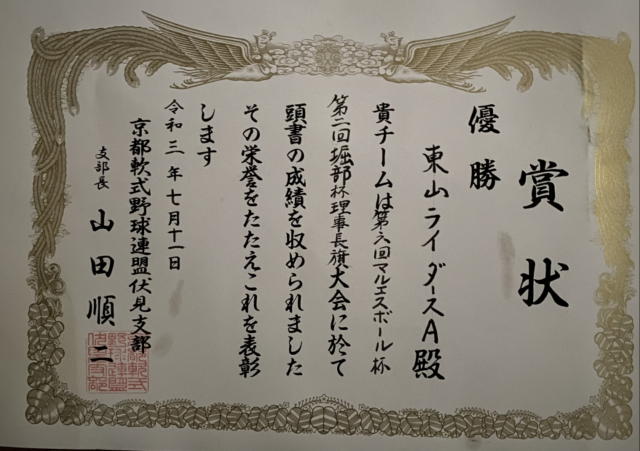 賞状
優勝
東山ライダースA殿
貴チームは第六回マルエスボール杯
第二回堀部杯理事長旗大会に於て
頭書の成績を収められました
その栄誉をたたえこれを表彰
します
令和三年七月十一日
京都軟式野球連盟伏見支部
支部長 山田順二